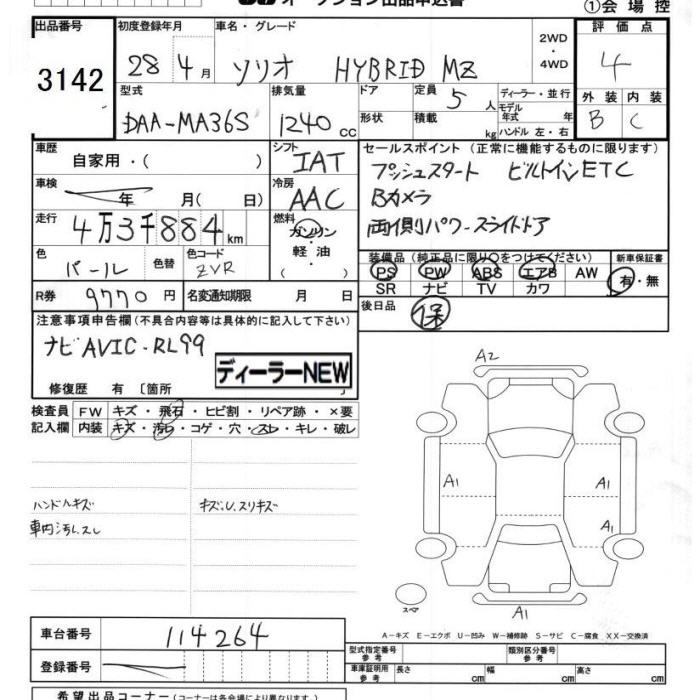 オークション出品申込書
①会場控
出品番号 初度登録年月 車名・グレード 2WD・4WD 評価点
3142 28年4月 ソリオ HYBRID MZ 4
型式 排気量 ドア 定員 5人 ディーラー・並行 外装 内装
DAA-MA36S 1240cc 形状 積載 kg モデル年式 年 ハンドル 左・右 B C
車歴 自家用・( ) シフト IAT セールスポイント(正常に機能するものに限ります)
車検 年 月( 日) 冷房 AAC プッシュスタート ビルトインETC
Bカメラ
走行 4万3千884km 燃料 ガソリン 軽油 両側パワースライドドア
色 パール 色替 色コード ZVR 装備品(純正品に限り○をつけてください) 新車保証書
PS PW ABS エアB AW 有・無
R券 9770円 名変通知期限 月 日 SR ナビ TV カワ
後日品 保
注意事項申告欄(不具合内容等は具体的に記入して下さい)
ナビAVIC-RL99
ディーラーNEW
修復歴 有 〔箇所
検査員記入欄 FW キズ・飛石・ヒビ割・リペア跡・×要
内装 キズ・汚れ・コゲ・穴・スレ・キレ・破レ
A2
A1 A1
A1
ハンドルキズ キズ.U.スリキズ
車内汚レ.スレ
スペア A1
A-キズ E-エクボ U-凹み W-補修跡 S-サビ C-腐食 XX-交換済
車台番号 114264
型式指定番号 参考 類別区分番号 参考
登録番号
車庫証明用 参考 長さ cm 幅 cm 高さ cm
希望出品コーナー(コーナーは各会場により異なります)